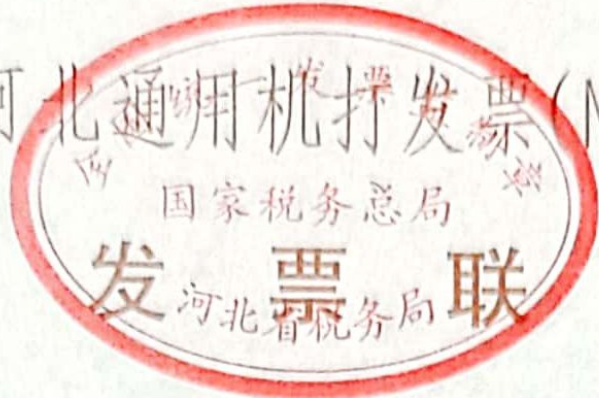 河北通用机打发票(
全国统一发票监制章
国家税务总局
发票联
河北省税务局